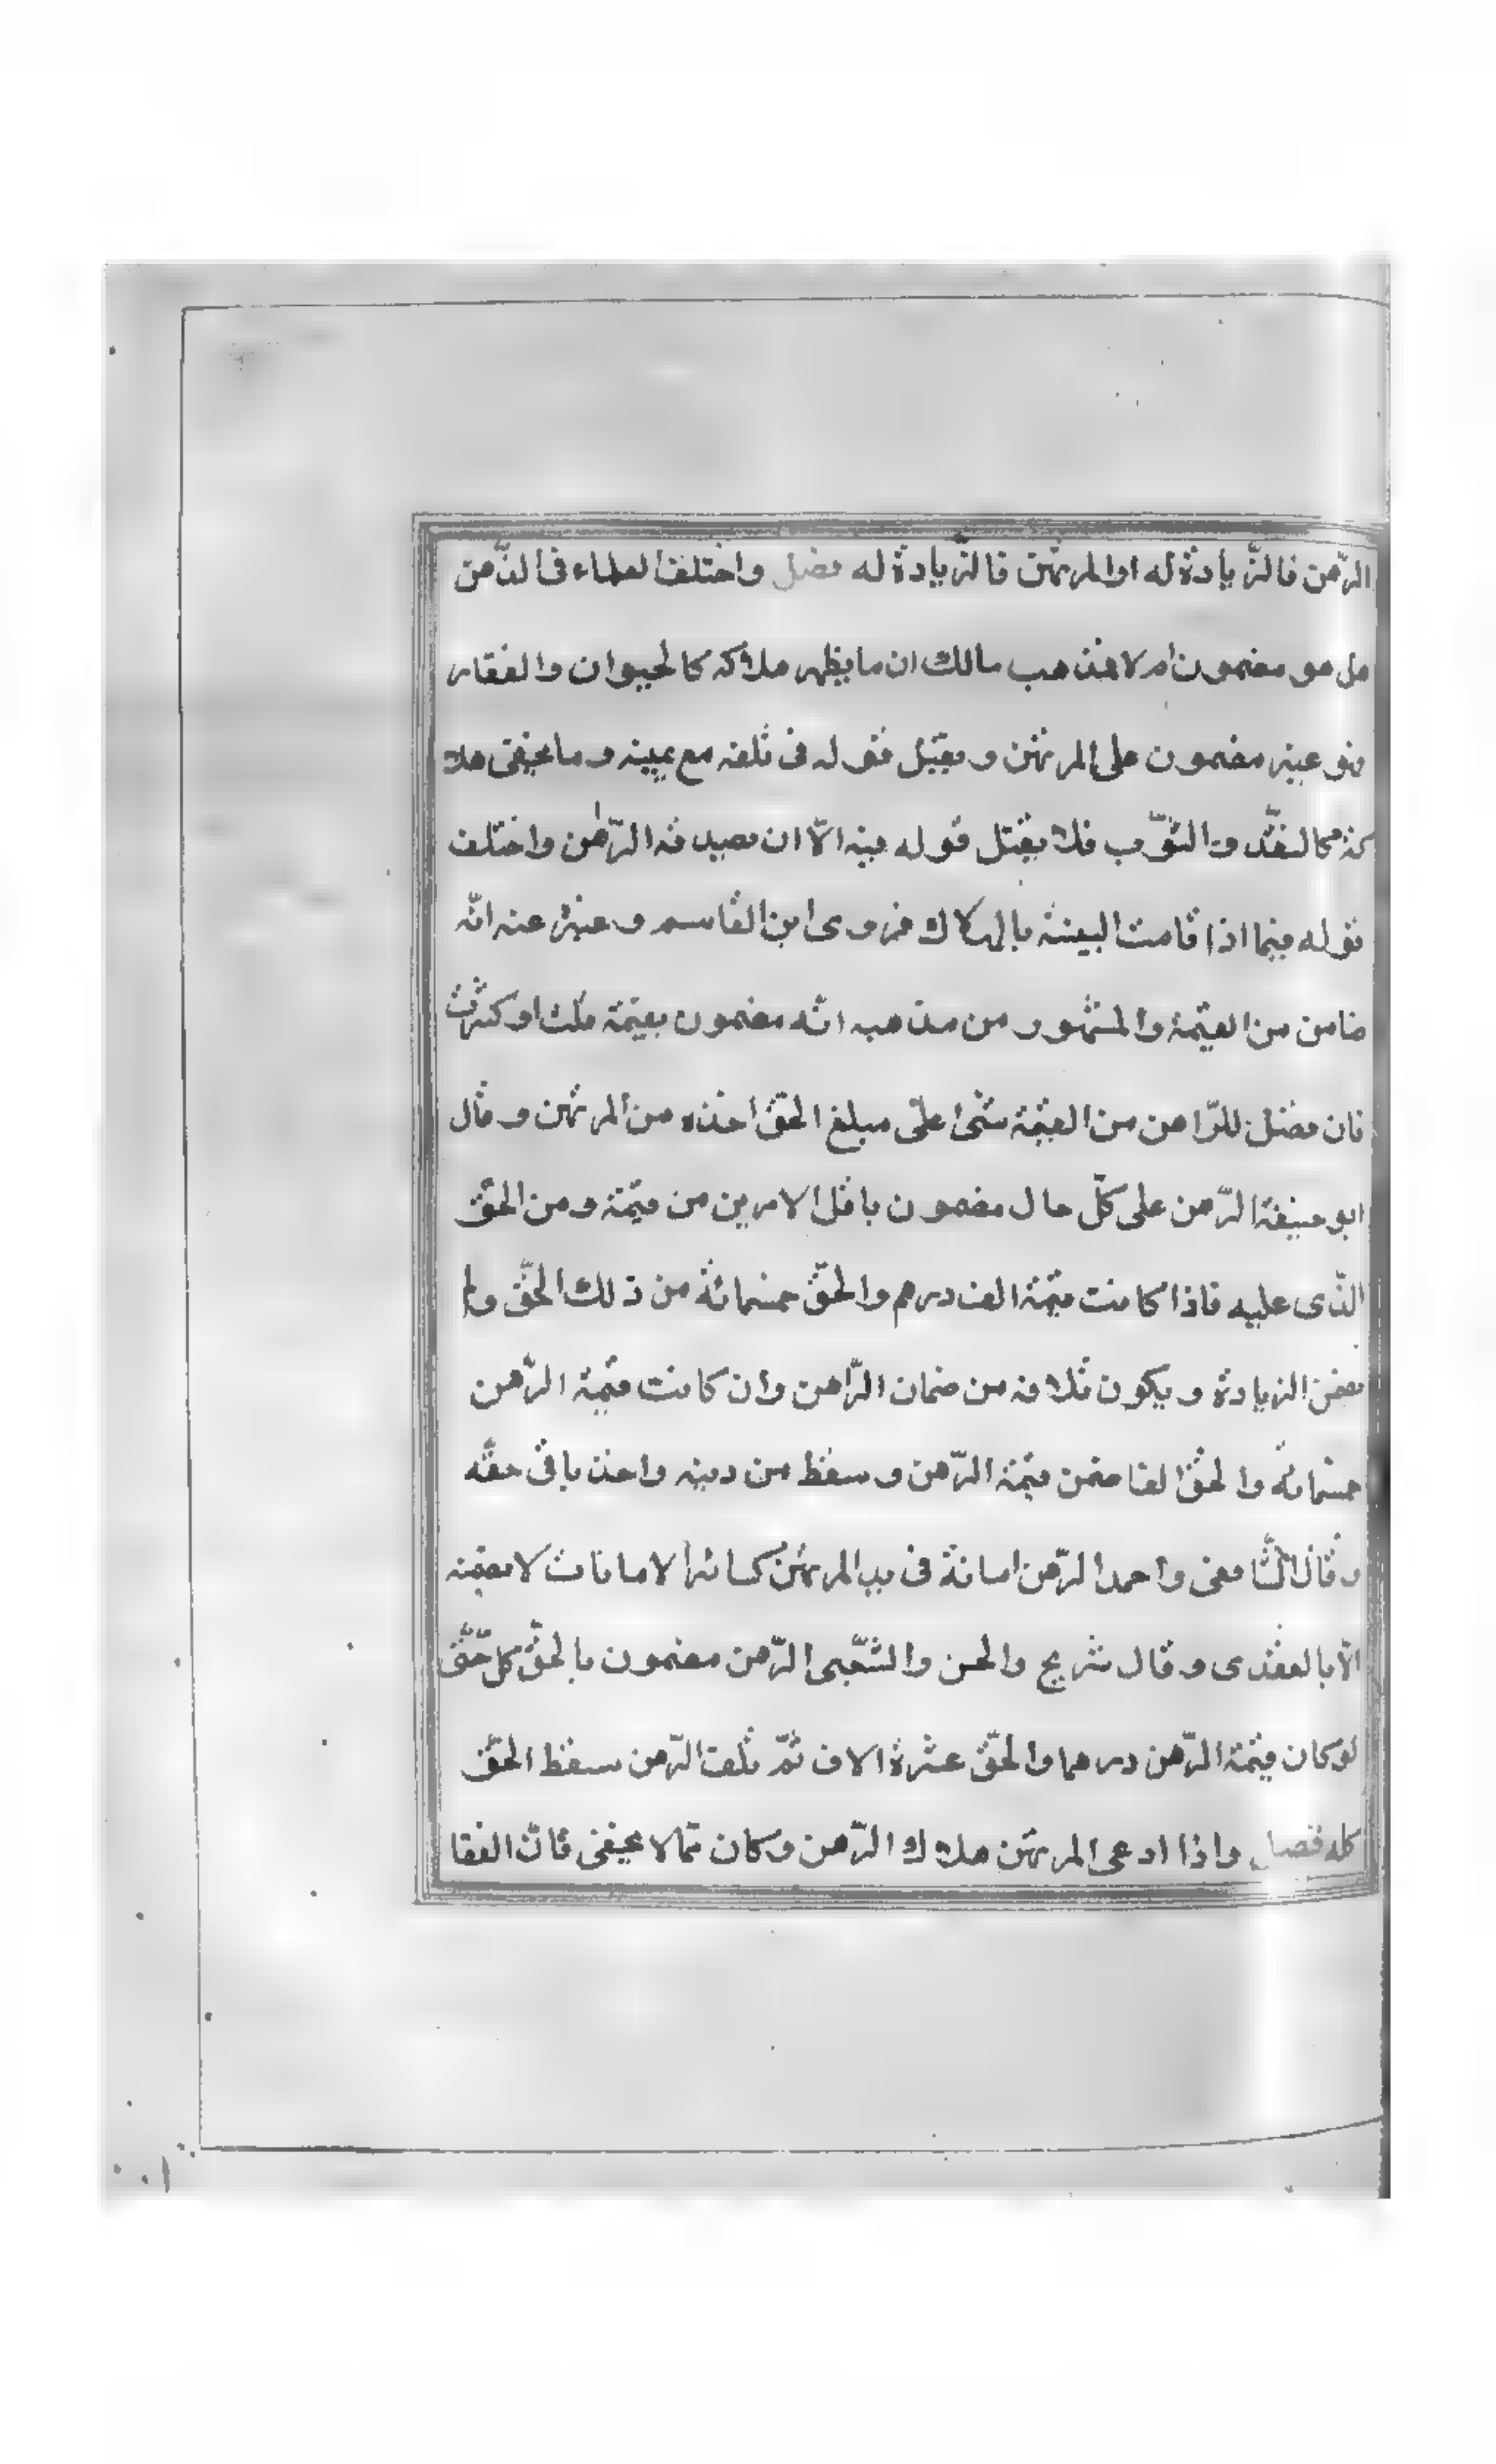 الرّهن فالزّيادة له او المرتهن فالزّيادة له فصل واختلف العلماء فى الرّهن
هل هو مضمون ام لا فمذهب مالك ان ما يظهر هلاكه كالحيوان والعقار
فهو غير مضمون على المرتهن ويقبل قوله فى تلفه مع يمينه وما يخفى هلا
كه كالنقد والثوب فلا يقبل قوله فيه الّا ان يصدقه الرّاهن واختلف
قوله فيما اذا قامت البينة بالهلاك فروى ابن القاسم وغيره عنه انّه
ضامن من القيمة والمشهور من مذهبه انّه مضمون بقيمة قلت او كثرت
فان فضل للرّاهن من القيمة شئ على مبلغ الحقّ اخذه من المرتهن وقال
ابو حنيفة الرّهن على كلّ حال مضمون باقل الامرين من قيمته ومن الحقّ
الّذى عليه فاذا كانت قيمته الف درهم والحقّ خمسمائة من ذلك الحقّ ولم
يضمن الزيادة ويكون تلافه من ضمان الرّاهن وان كانت قيمة الرّهن
خمسمائة والحقّ الفا ضمن قيمة الرّهن وسقط من دينه واخذ باقى حقّه
وقال الشّافعى واحمد الرّهن امانة فى يد المرتهن كسائر الامانات لا يضمنه
الّا بالتعدى وقال شريح والحسن والشّعبى الرّهن مضمون بالحقّ كلّه حتّى
لو كان قيمة الرّهن درهما والحقّ عشرة الاف ثمّ تلف الرّهن سقط الحقّ
كله فصل واذا ادعى المرتهن هلاك الرّهن وكان ممّا لا يخفى فان اتفقا